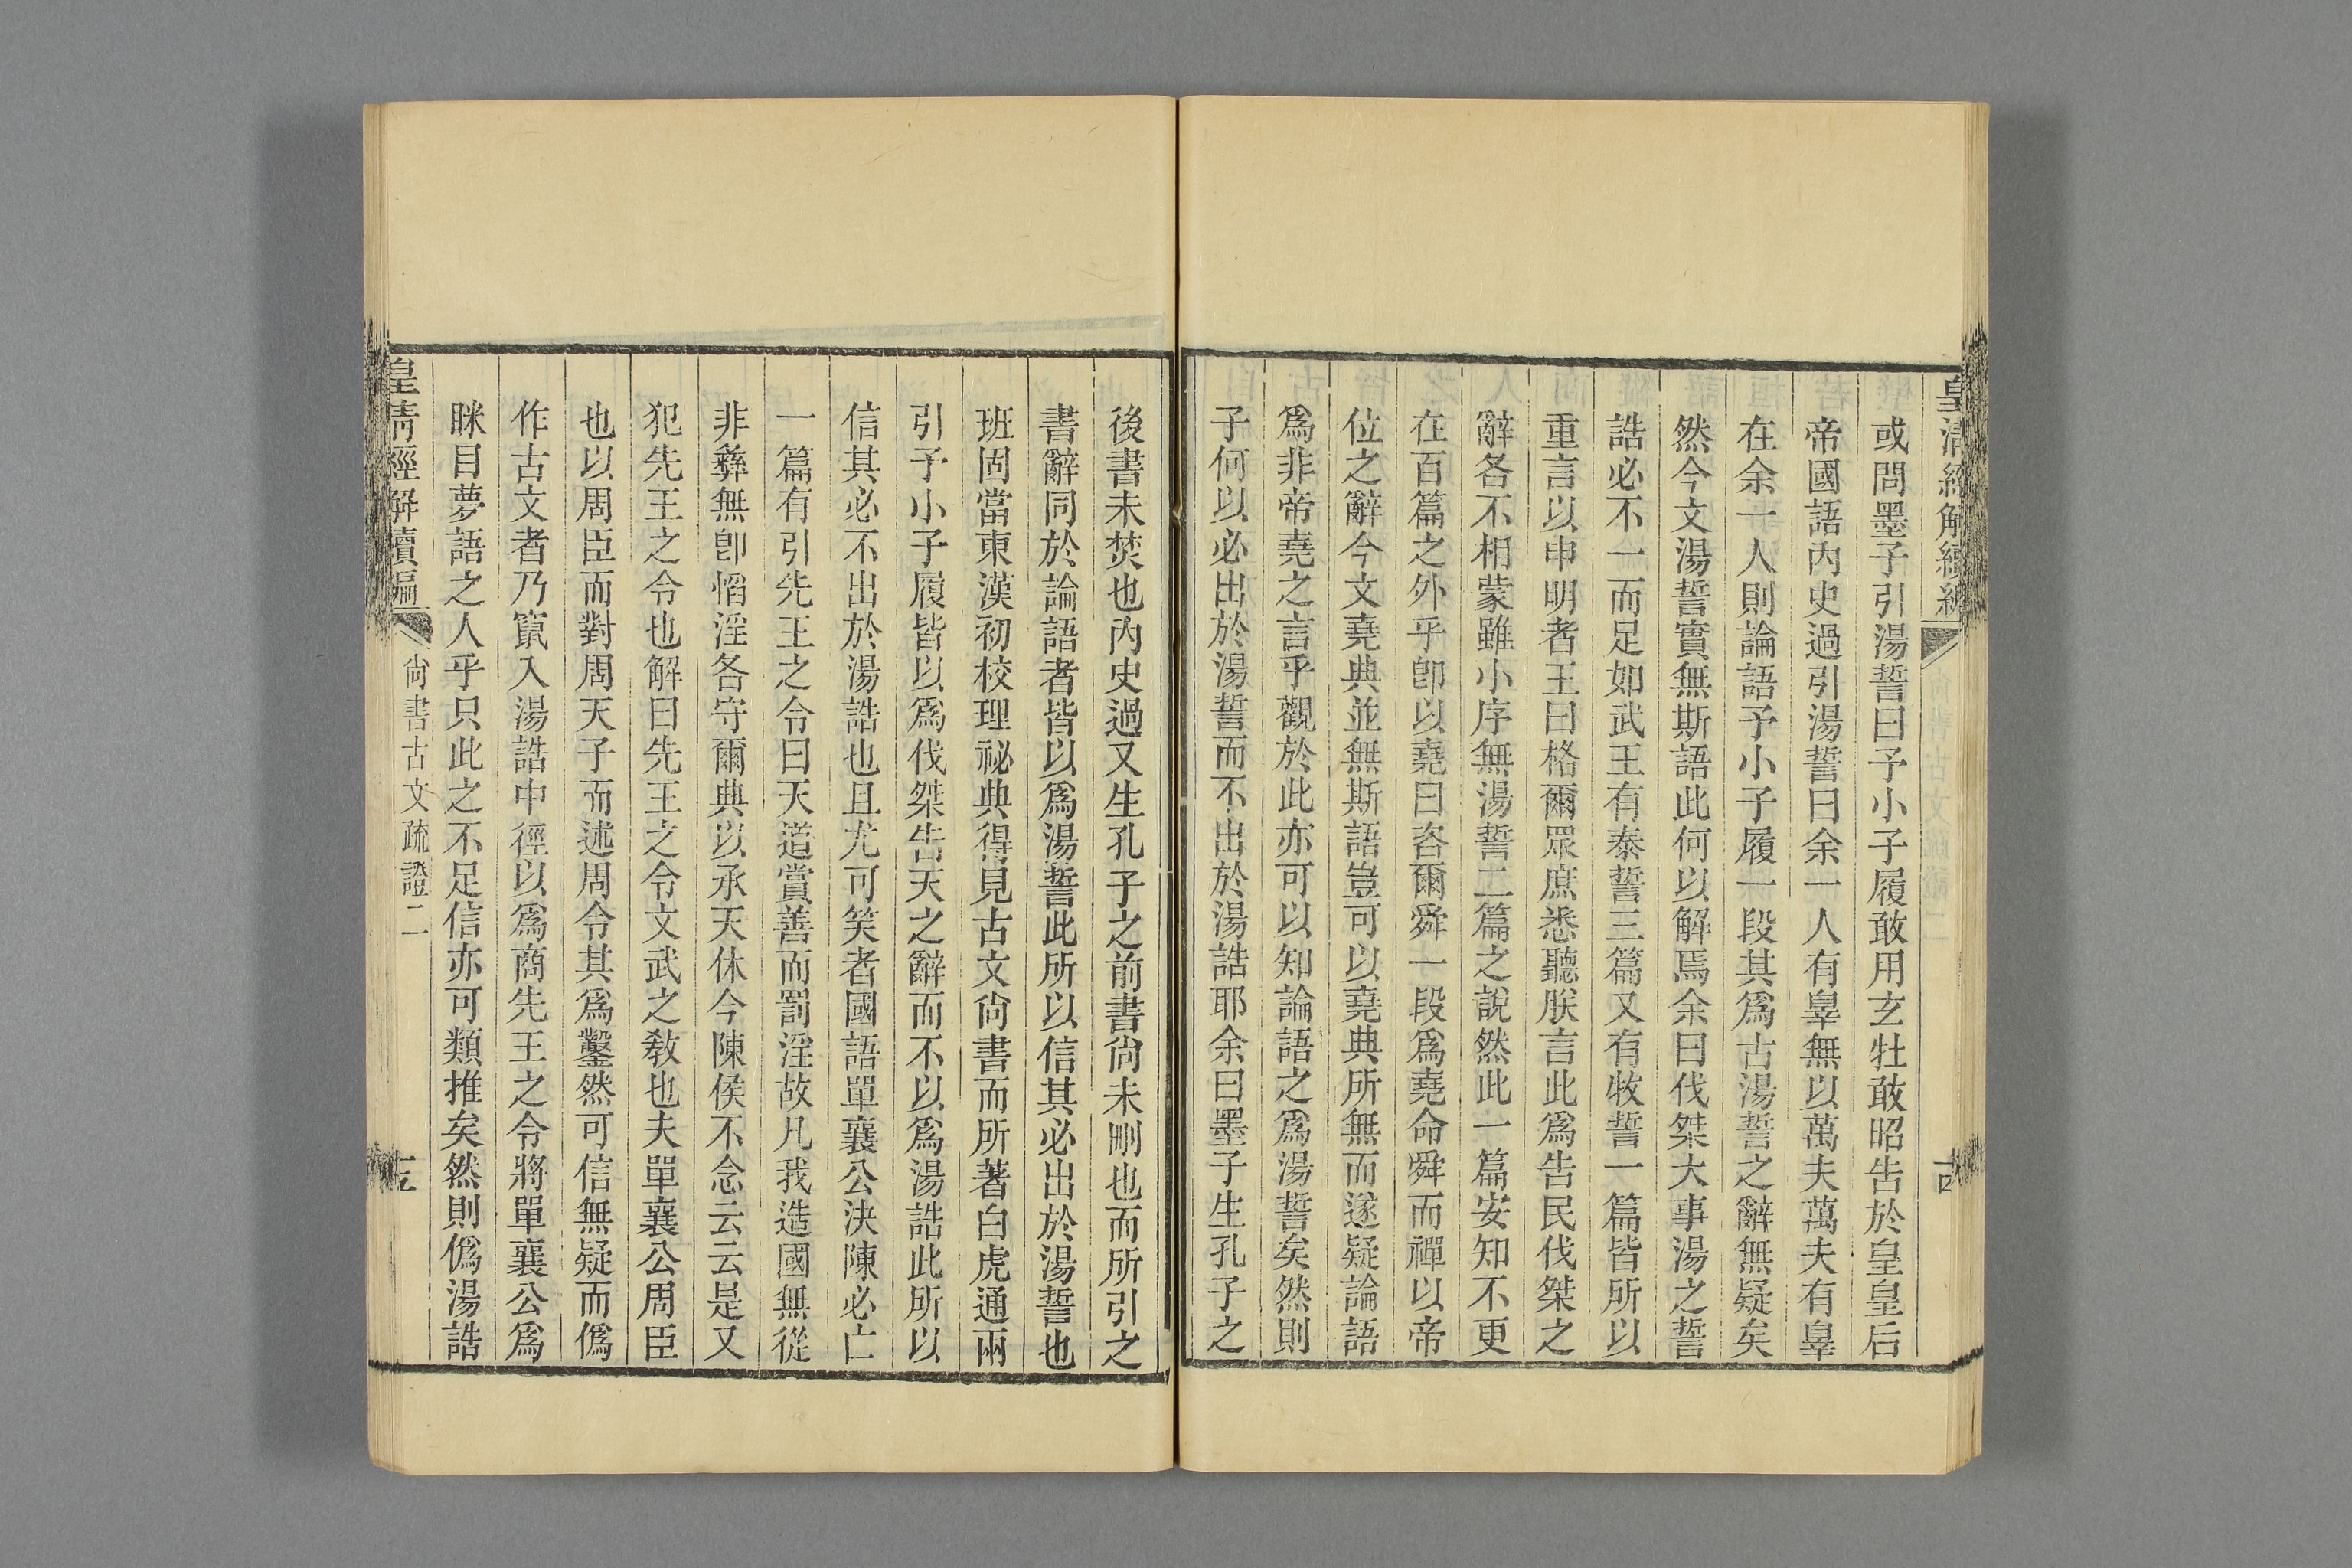 皇清經解續編
或問墨子引湯誓曰予小子履敢用玄牡敢昭告於皇皇后
帝國語內史過引湯誓曰余一人有辠無以萬夫萬夫有辠
在余一人則論語予小子履一段其爲古湯誓之辭無疑矣
然今文湯誓實無斯語此何以解焉余曰伐桀大事湯之誓
誥必不一而足如武王有泰誓三篇又有牧誓一篇皆所以
重言以申明者王曰格爾眾庶悉聽朕言此爲告民伐桀之
辭各不相蒙雖小序無湯誓二篇之說然此一篇安知不更
在百篇之外乎卽以堯曰咨爾舜一段爲堯命舜而禪以帝
位之辭今文堯典並無斯語豈可以堯典所無而遂疑論語
爲非帝堯之言乎觀於此亦可以知論語之爲湯誓矣然則
子何以必出於湯誓而不出於湯誥耶余曰墨子生孔子之
後書未焚也內史過又生孔子之前書尙未刪也而所引之
書辭同於論語者皆以爲湯誓此所以信其必出於湯誓也
班固當東漢初校理祕典得見古文尙書而所著白虎通兩
引予小子履皆以爲伐桀告天之辭而不以爲湯誥此所以
信其必不出於湯誥也且尤可笑者國語單襄公決陳必亡
一篇有引先王之令曰天道賞善而罰淫故凡我造國無從
非彝無卽慆淫各守爾典以承天休今陳侯不念云云是又
犯先王之令也解曰先王之令文武之敎也夫單襄公周臣
也以周臣而對周天子而述周令其爲鑿然可信無疑而僞
作古文者乃竄入湯誥中徑以爲商先王之令將單襄公爲
眯目夢語之人乎只此之不足信亦可類推矣然則僞湯誥
皇清經解續編
尙書古文疏證二